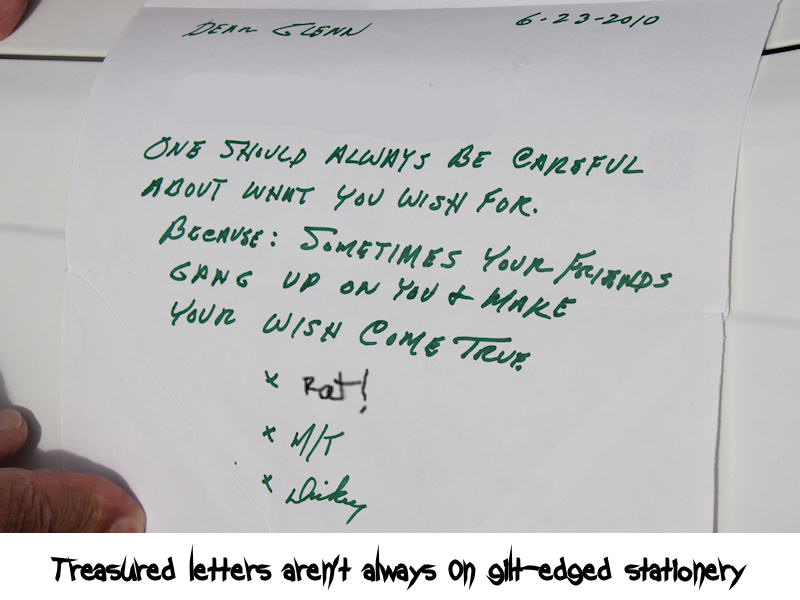 DEAR GLENN 6-23-2010
ONE SHOULD ALWAYS BE CAREFUL
ABOUT WHAT YOU WISH FOR.
BECAUSE: SOMETIMES YOUR FRIENDS
GANG UP ON YOU & MAKE
YOUR WISH COME TRUE.
x Rat!
x M/T
x Dickey
Treasured letters aren't always on gilt-edged stationery